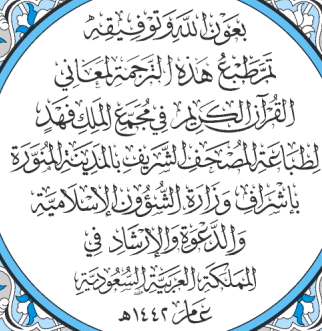 بعون الله وتوفيقه
تم طبع هذه الترجمة لمعاني
القرآن الكريم في مجمع الملك فهد
لطباعة المصحف الشريف بالمدينة المنورة
بإشراف وزارة الشؤون الإسلامية
والدعوة والإرشاد في
المملكة العربية السعودية
عام ١٤٤٢هـ